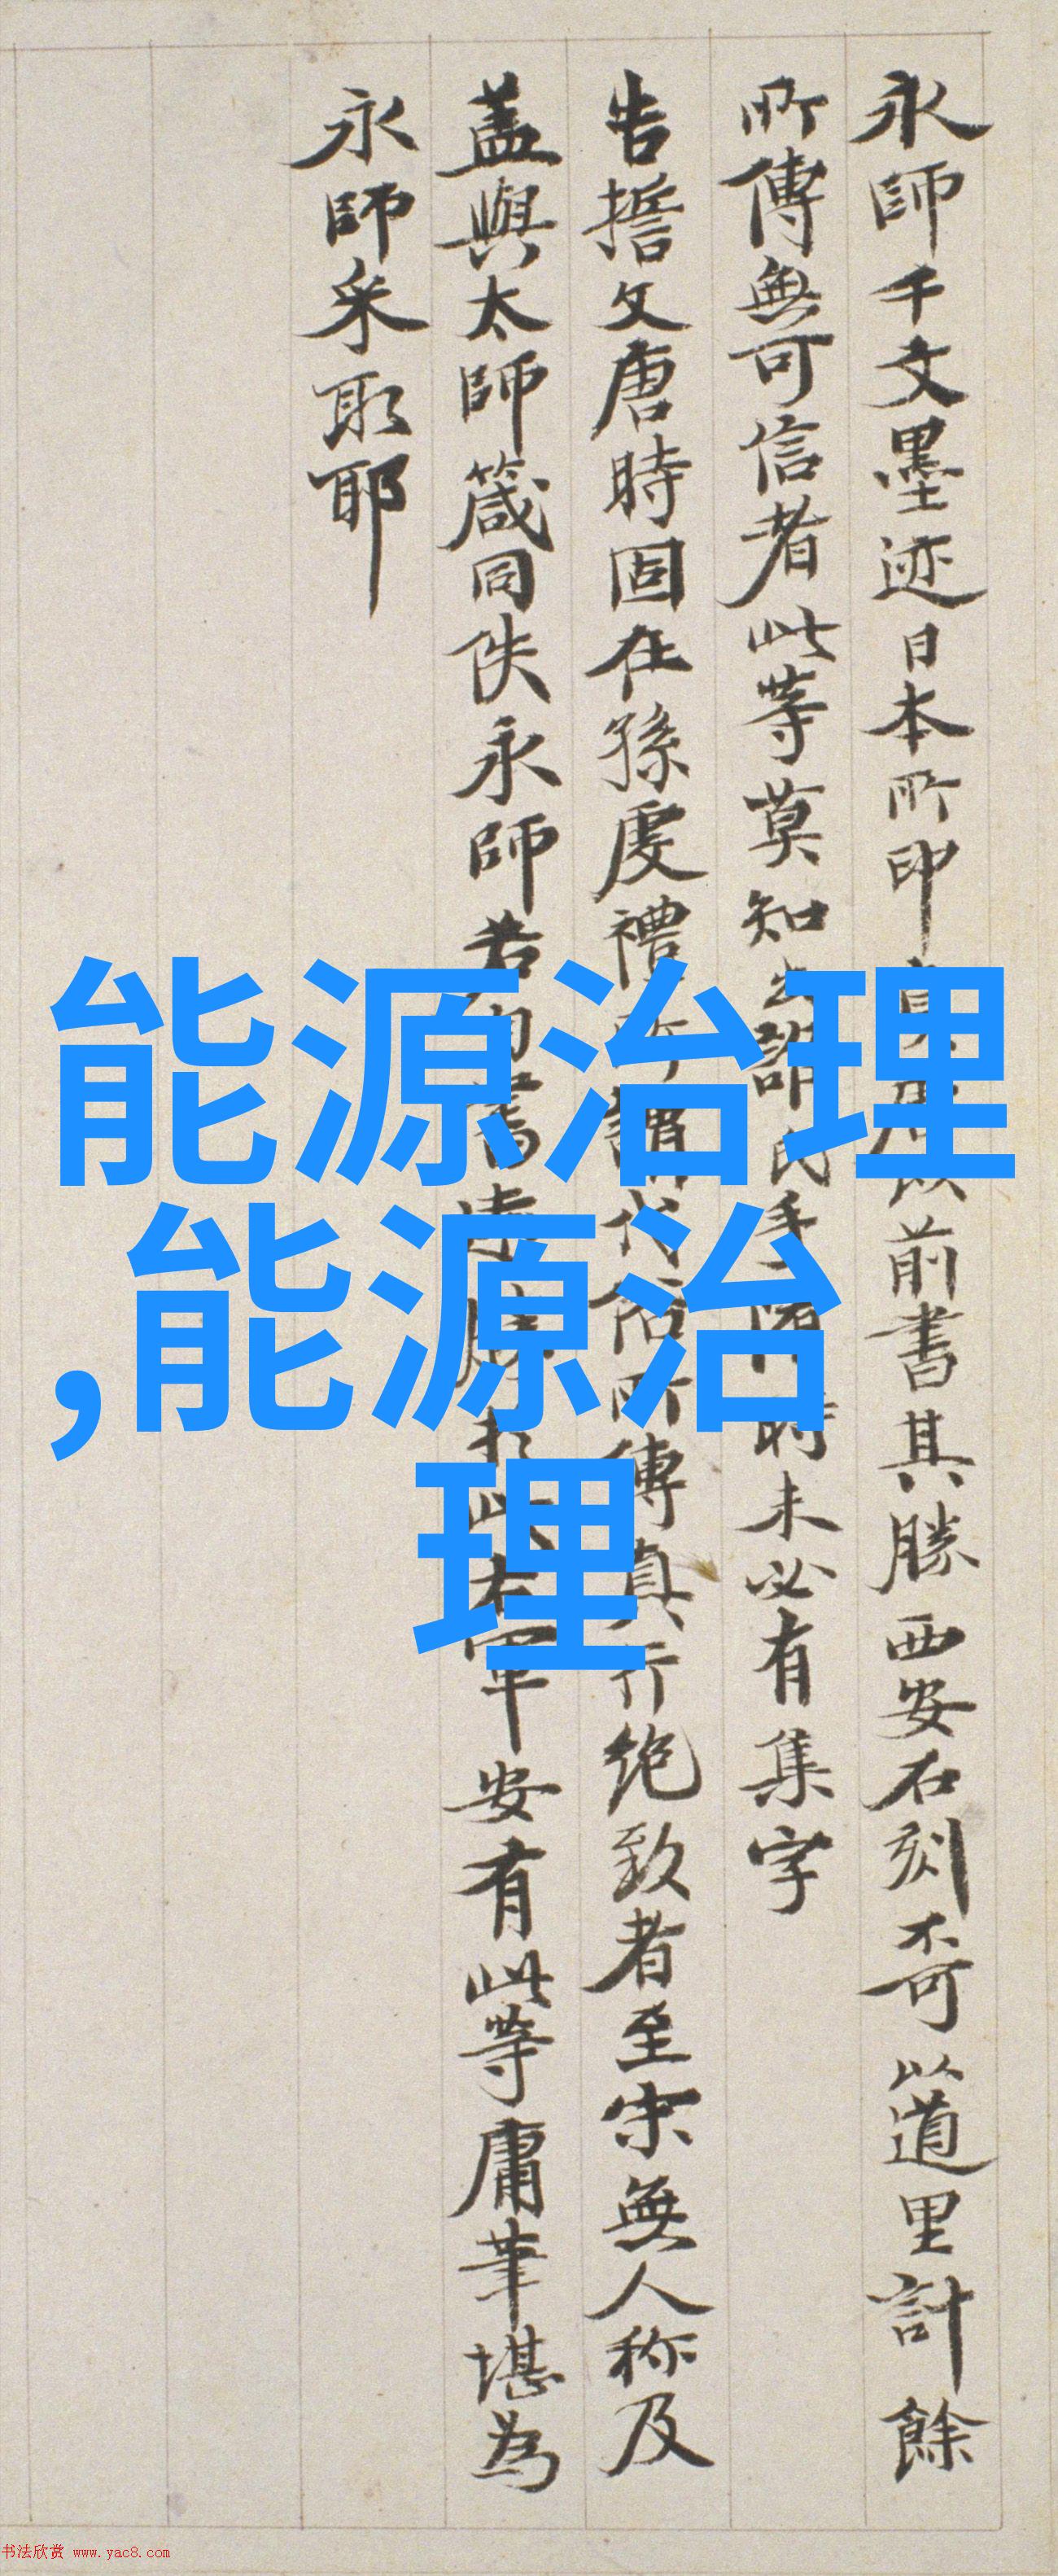 永師千文墨迹日本所印前書其勝西安石刻不可以道里計餘
所傳無可信者此等莫知氏手時未必有集字
告擔文唐時固在孫虔禮所傳真行絕致者至宋無人称及
蓋與太師箴同佚永師若安有此等庸筆堪為
永師采取耶
能源治理
,能源治
理
书法欣赏 www.yac8.com